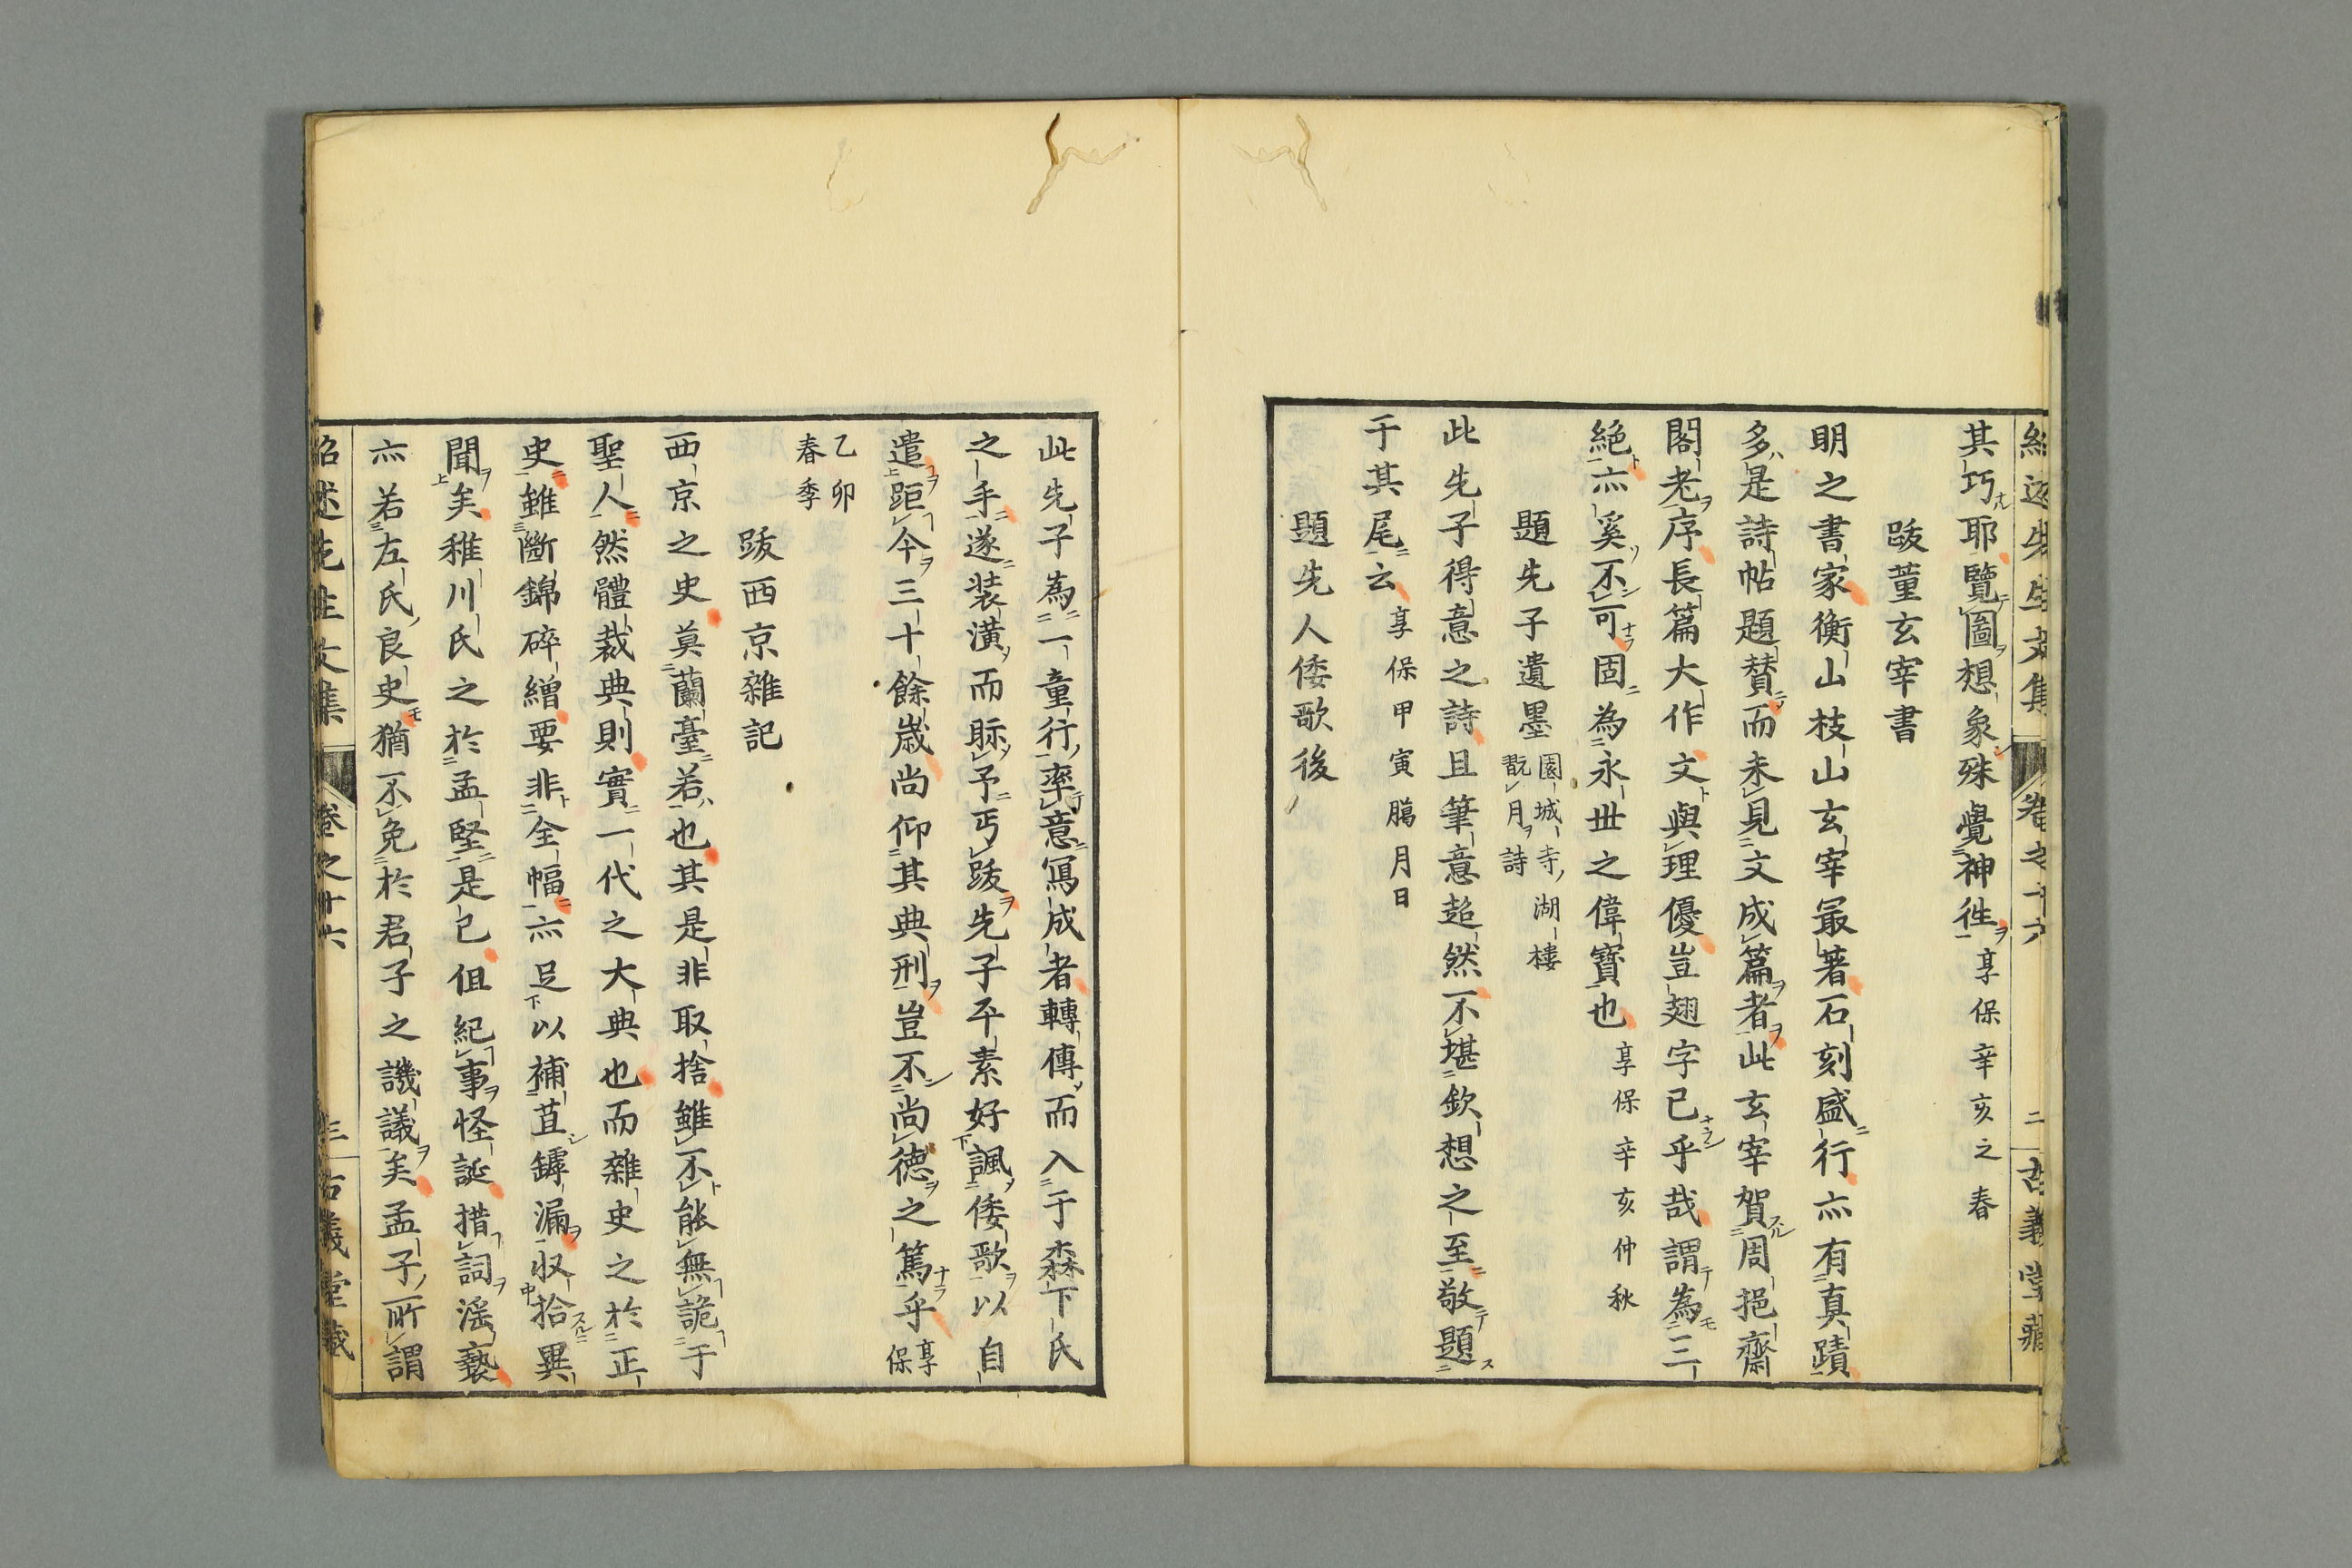 其巧耶覽圖想象殊覺神徃享保辛亥之春
跋董玄宰書
明之書家衡山枝山玄宰最著石刻盛行亦有真蹟
多是詩帖題賛而未見文成篇者此玄宰賀周挹齋
閣老序長篇大作文與理優豈翅字已乎哉謂為三
絕亦奚不可固為永世之偉寶也享保辛亥仲秋
題先子遺墨園城寺湖樓
翫月詩
此先子得意之詩且筆意超然不堪欽想之至敬題
于其尾云享保甲寅臈月日
題先人倭歌後
紹述先生文集
卷之十六
二
古義堂藏
此先子為一童行率意寫成者轉傳而入于森下氏
之手遂装潢而眎予丐跋先子平素好諷倭歌以自
遣距今三十餘歲尚仰其典刑豈不尚德之篤乎享
保
乙卯
春季
跋西京雜記
西京之史莫蘭臺若也其是非取捨雖不能無詭于
聖人然體裁典則實一代之大典也而雜史之於正
史雖斷錦碎繒要非全幅亦足以補苴罅漏収拾異
聞矣稚川氏之於孟堅是已但紀事怪誕措詞滛褻
亦若左氏良史猶不免於君子之譏議矣孟子所謂
紹述先生文集
卷之十六
三
古義堂藏